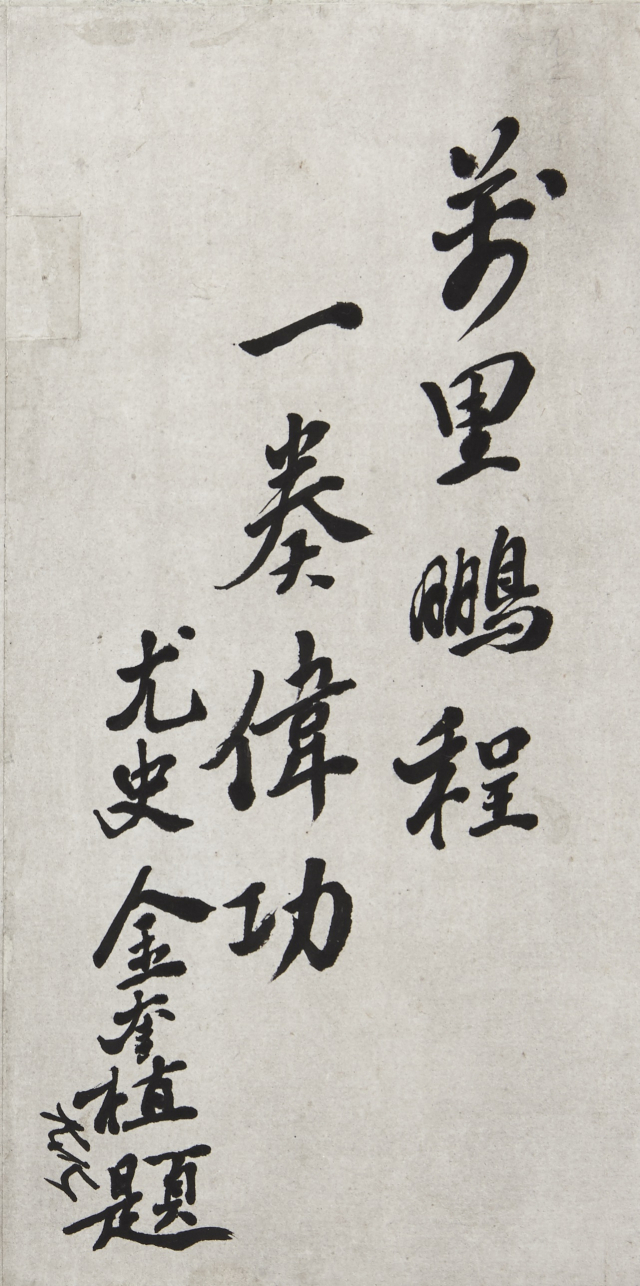 萬里鵬程
一奏偉功
尤史
金奎植題